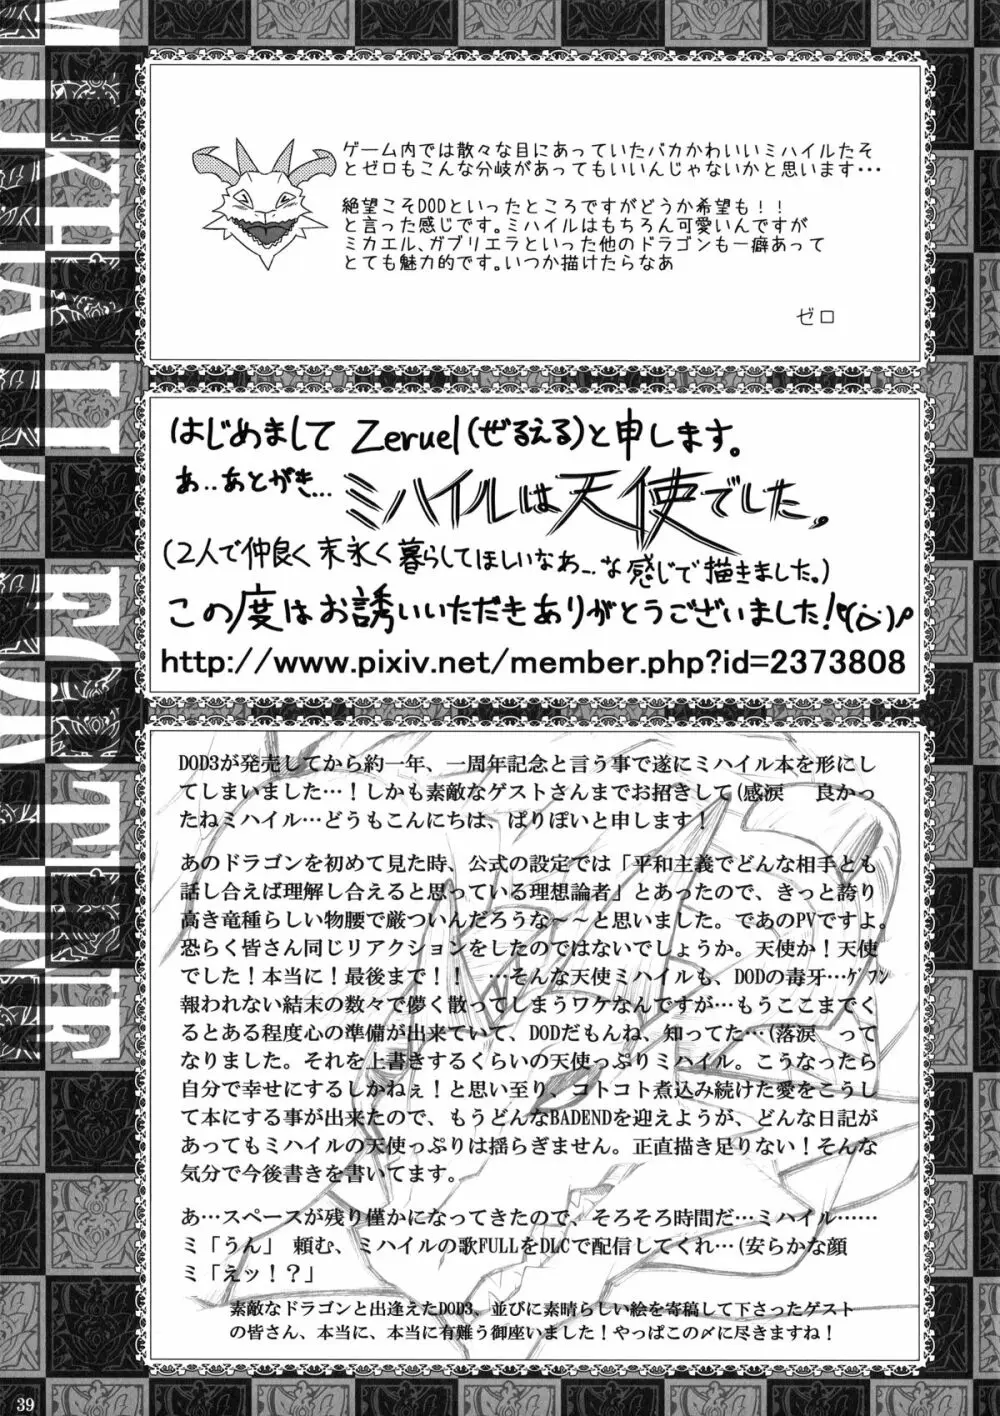 MIKHAIL FORTUNE
ゲーム内では散々な目にあっていたバカかわいいミハイルたそ
とゼロもこんな分岐があってもいいんじゃないかと思います・・・
絶望こそDODといったところですがどうか希望も！！
と言った感じです。ミハイルはもちろん可愛いんですが
ミカエル、ガブリエラといった他のドラゴンも一癖あって
とても魅力的です。いつか描けたらなあ
ゼロ
はじめまして Zeruel(ぜるえる)と申します。
あ..あとがき... ミハイルは天使でした。
(2人で仲良く末永く暮らしてほしいなあ...な感じで描きました。)
この度はお誘いいただきありがとうございました!
http://www.pixiv.net/member.php?id=2373808
DOD3が発売してから約一年、一周年記念と言う事で遂にミハイル本を形にし
てしまいました…！しかも素敵なゲストさんまでお招きして(感涙　良かっ
たねミハイル…どうもこんにちは、ぱりぽいと申します！
あのドラゴンを初めて見た時、公式の設定では「平和主義でどんな相手とも
話し合えば理解し合えると思っている理想論者」とあったので、きっと誇り
高き竜種らしい物腰で厳ついんだろうな～～と思いました。であのPVですよ。
恐らく皆さん同じリアクションをしたのではないでしょうか。天使か！天使
でした！本当に！最後まで！！　…そんな天使ミハイルも、DODの毒牙…ｹﾞﾌﾝ
報われない結末の数々で儚く散ってしまうワケなんですが…もうここまでく
るとある程度心の準備が出来ていて、DODだもんね、知ってた…(落涙　って
なりました。それを上書きするくらいの天使っぷりミハイル。こうなったら
自分で幸せにするしかねぇ！と思い至り、コトコト煮込み続けた愛をこうし
て本にする事が出来たので、もうどんなBADENDを迎えようが、どんな日記が
あってもミハイルの天使っぷりは揺らぎません。正直描き足りない！そんな
気分で今後書きを書いてます。
あ…スペースが残り僅かになってきたので、そろそろ時間だ…ミハイル……
ミ「うん」 頼む、ミハイルの歌FULLをDLCで配信してくれ…(安らかな顔
ミ「えッ！？」
素敵なドラゴンと出逢えたDOD3、並びに素晴らしい絵を寄稿して下さったゲスト
の皆さん、本当に、本当に有難う御座いました！やっぱこの〆に尽きますね！
39